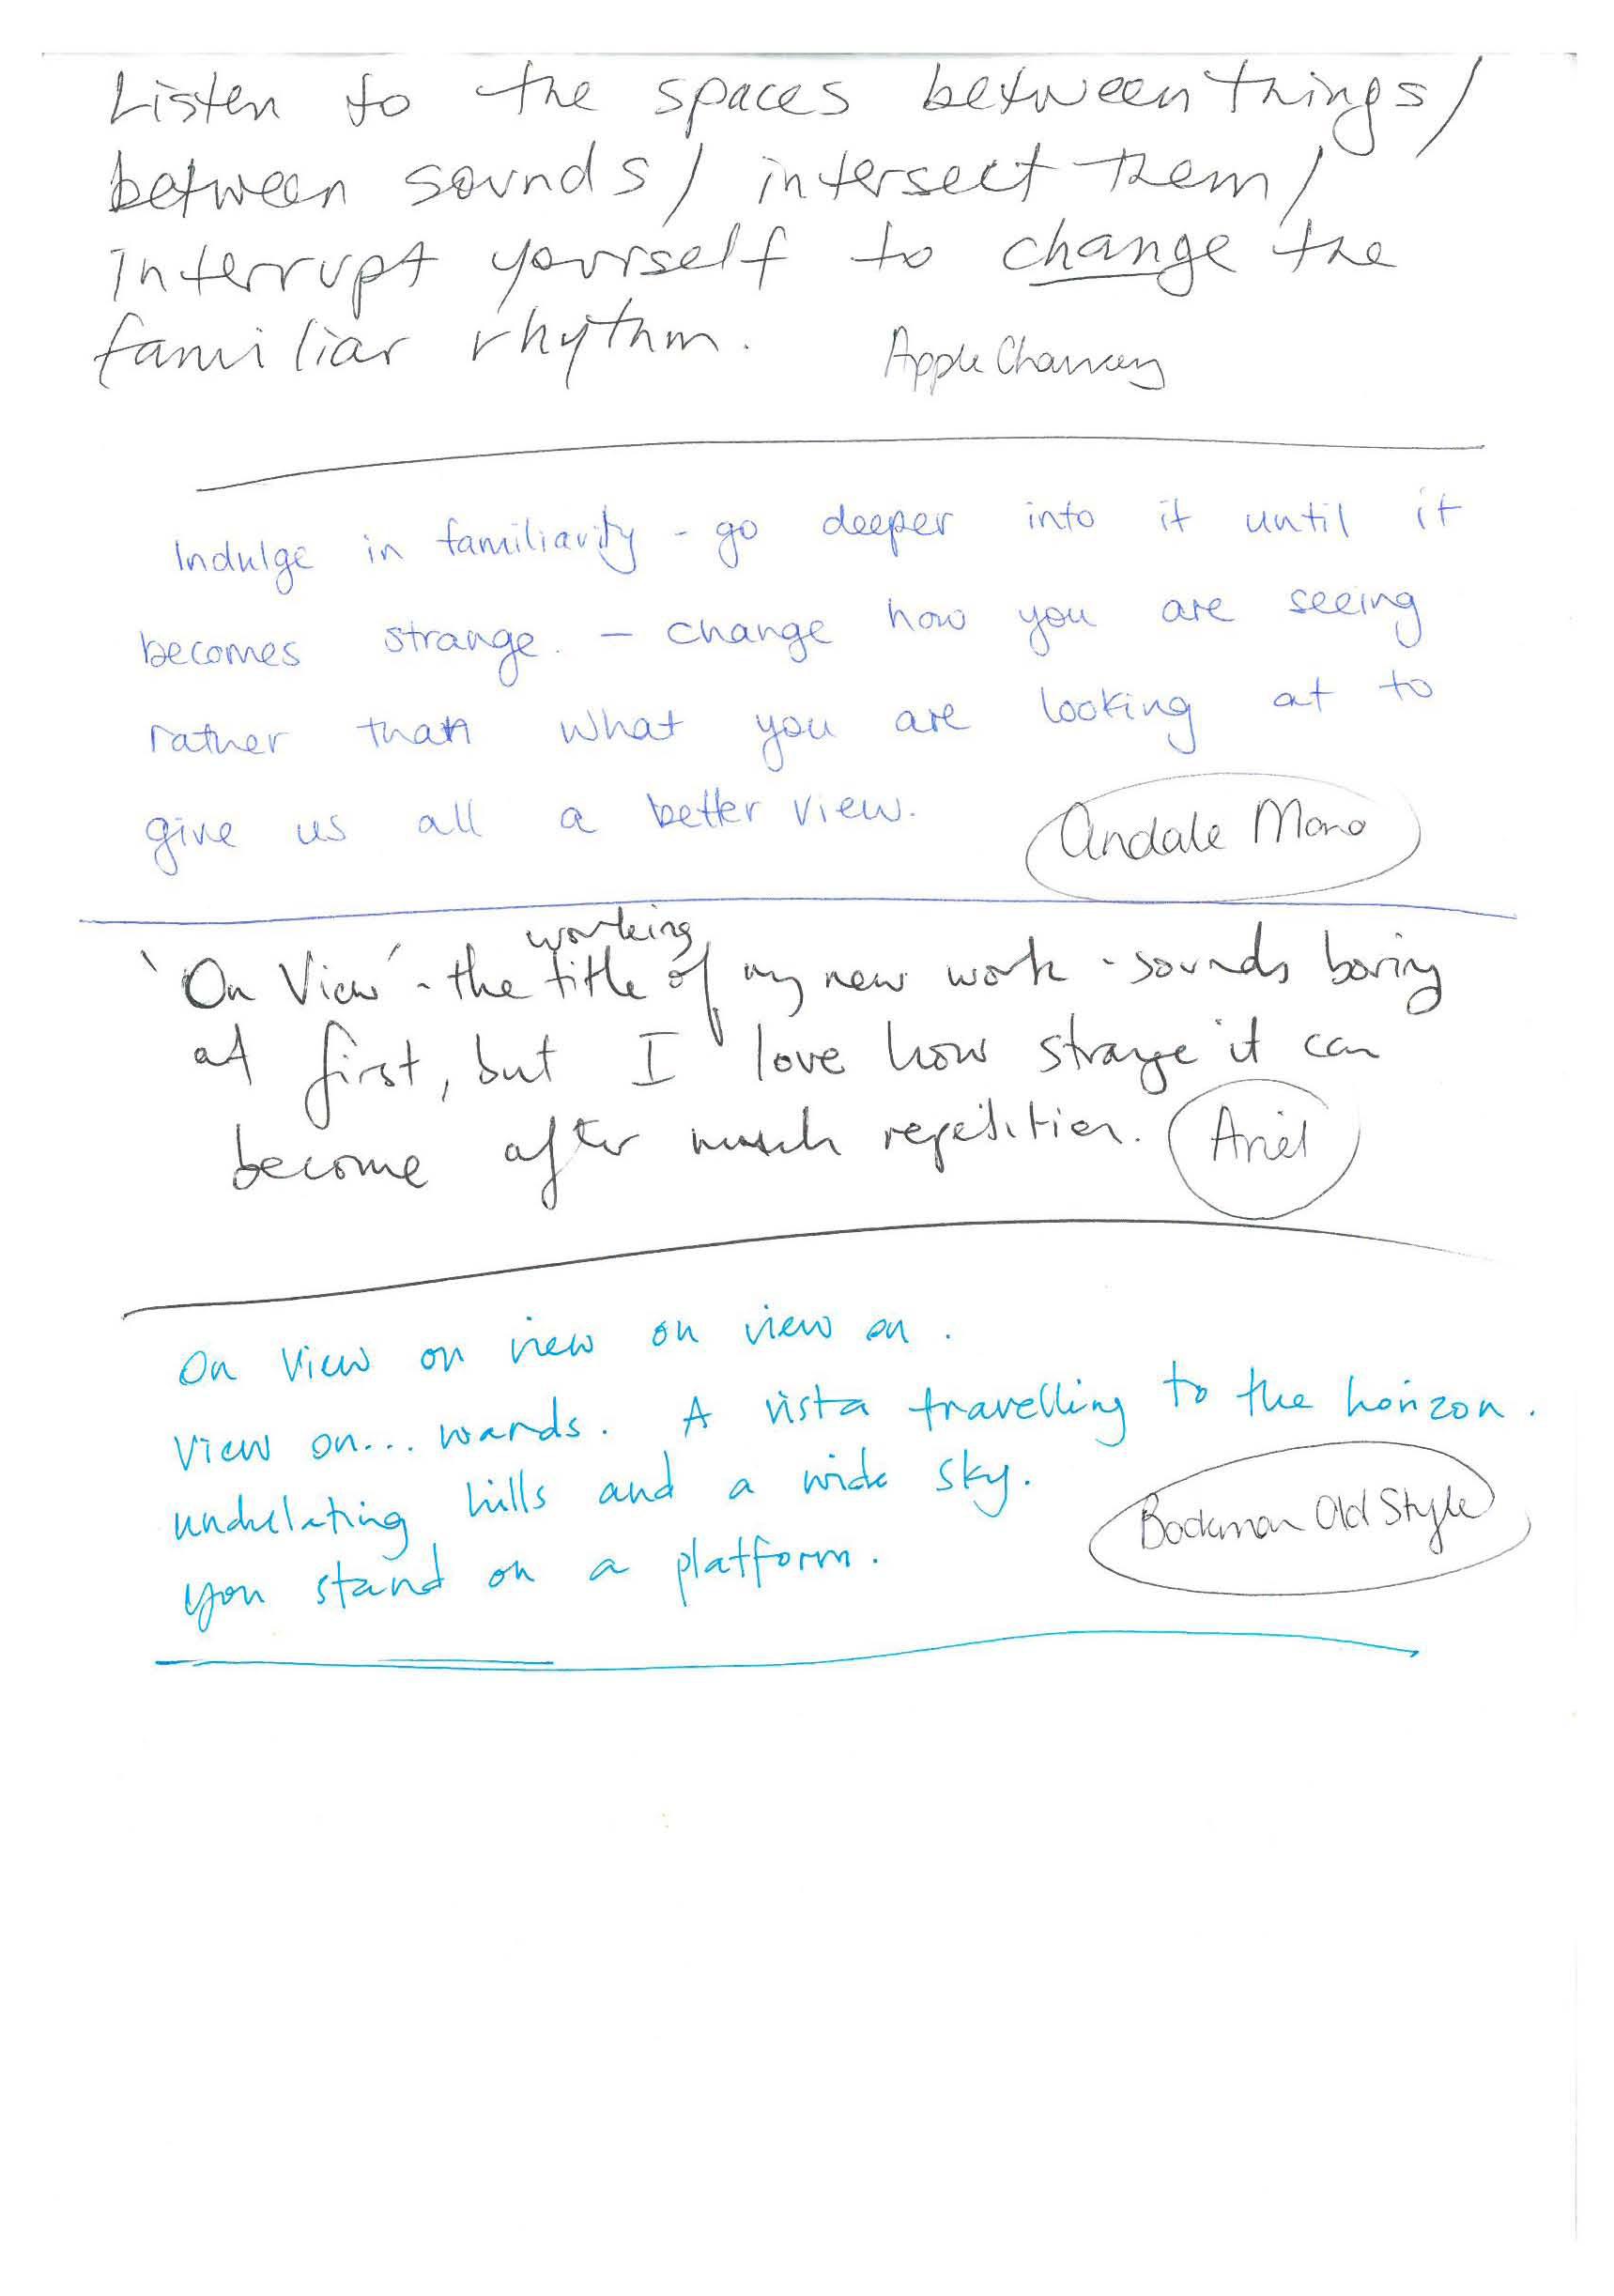 Listen to the spaces between things/
between sounds/ intersect them/
Interrupt yourself to change the
familiar rhythm.
Apple Chancery
Indulge in familiarity - go deeper into it until it
becomes strange. - change how you are seeing
rather than what you are looking at to
give us all a better view.
Andale Mono
working
'On View' - the title of my new work - sounds boring
at first, but I love how strange it can
become after much repetition.
Ariel
On View on view on view on.
View on... wards. A vista travelling to the horizon.
undulating hills and a wide sky.
you stand on a platform.
Bookman Old Style